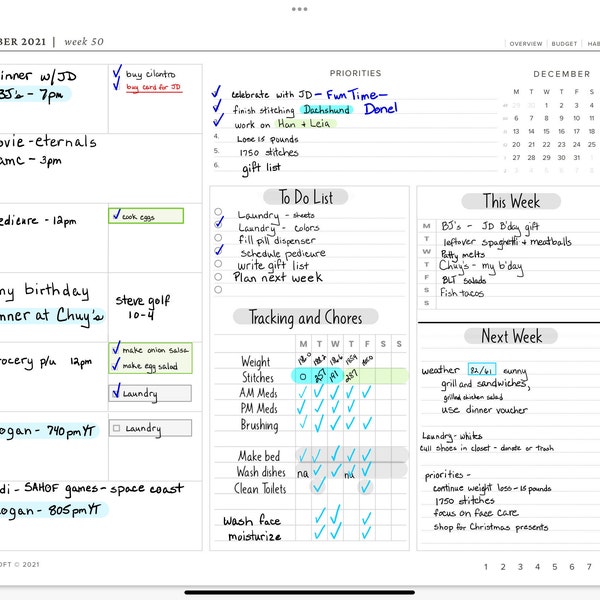 BER 2021 | week 50
OVERVIEW | BUDGET | HAB
inner w/JD
BJ's - 7pm
✓ buy cilantro
✓ buy card for JD
movie - eternals
amc - 3pm
edicure - 12pm
✓ cook eggs
my birthday
nner at Chuy's
steve golf
10-4
rocery p/u 12pm
✓ make onion salsa
✓ make egg salad
✓ Laundry
ogan - 740pm YT
Laundry
di - SAHOF games - space coast
ogan - 805pm YT
PRIORITIES
✓ celebrate with JD - Fun Time -
✓ finish stitching Dachshund Done!
✓ work on Han + Leia
4. Lose 15 pounds
5. 1750 stitches
6. gift list
DECEMBER
M T W T F S
29 30 1 2 3 4
6 7 8 9 10 11
13 14 15 16 17 18
20 21 22 23 24 25
27 28 29 30 31 1
To Do List
Laundry - sheets
✓ Laundry - colors
fill pill dispenser
✓ Schedule pedicure
write gift list
Plan next week
This Week
M BJ's - JD B'day gift
T leftover spaghetti + meatballs
W Patty melts
T Chuy's - my b'day
F BLT salads
S Fish tacos
S
Tracking and Chores
M T W T F S S
Weight
Stitches 0 257 191 287
AM Meds ✓ ✓ ✓ ✓ ✓
PM Meds ✓ ✓ ✓ ✓
Brushing ✓ ✓ ✓ ✓ ✓
Make bed ✓ ✓ ✓ ✓ ✓
Wash dishes na ✓ ✓ na ✓
Clean Toilets ✓ ✓
wash face ✓ ✓ ✓
moisturize ✓ ✓ ✓
Next Week
weather 82/61 sunny
grill and sandwiches,
grilled chicken salad
use dinner voucher
Laundry - whites
cull shoes in closet - donate or trash
priorities -
continue weight loss - 15 pounds
1750 stitches
focus on face care
shop for Christmas presents
OFT © 2021
1 2 3 4 5 6 7